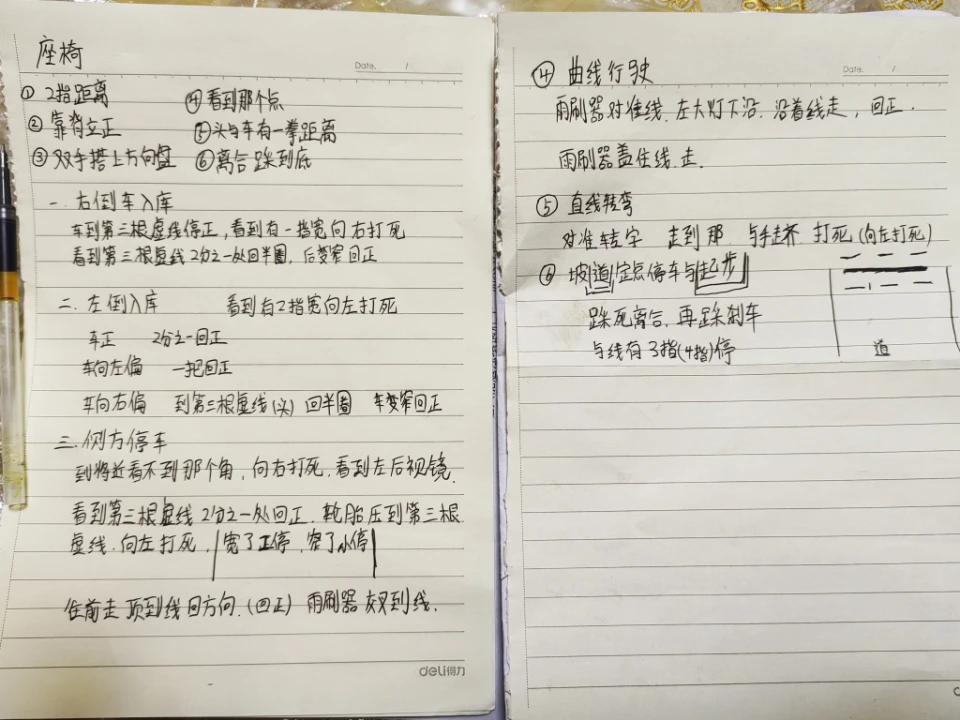 座椅
Date. /
① 2指距离 ④ 看到那个点
② 靠背立正 ⑤ 头与车有一拳距离
③ 双手搭上方向盘 ⑥ 离合踩到底
一. 右倒车入库
车到第三根虚线停正,看到有一指宽向右打死
看到第三根虚线2分之一处回半圈,后变窄回正
二. 左倒入库 看到有2指宽向左打死
车正 2分之一回正
车向左偏 一把回正
车向右偏 到第三根虚线(头) 回半圈 车变窄回正
三. 侧方停车
到将近看不到那个角,向右打死,看到左后视镜.
看到第三根虚线2分之一处回正.轮胎压到第三根
虚线.向左打死, 宽了正停,窄了小停
往前走 顶到线回方向.(回正) 雨刷器 到线.
deli得力
Date. /
④ 曲线行驶
雨刷器对准线.左大灯下沿.沿着线走,回正.
雨刷器盖住线.走.
⑤ 直线转弯
对准转字 走到那 与手走齐. 打死(向左打死)
⑥ 坡道定点停车与起步
踩死离合.再踩刹车
与线有3指(4指)停
道